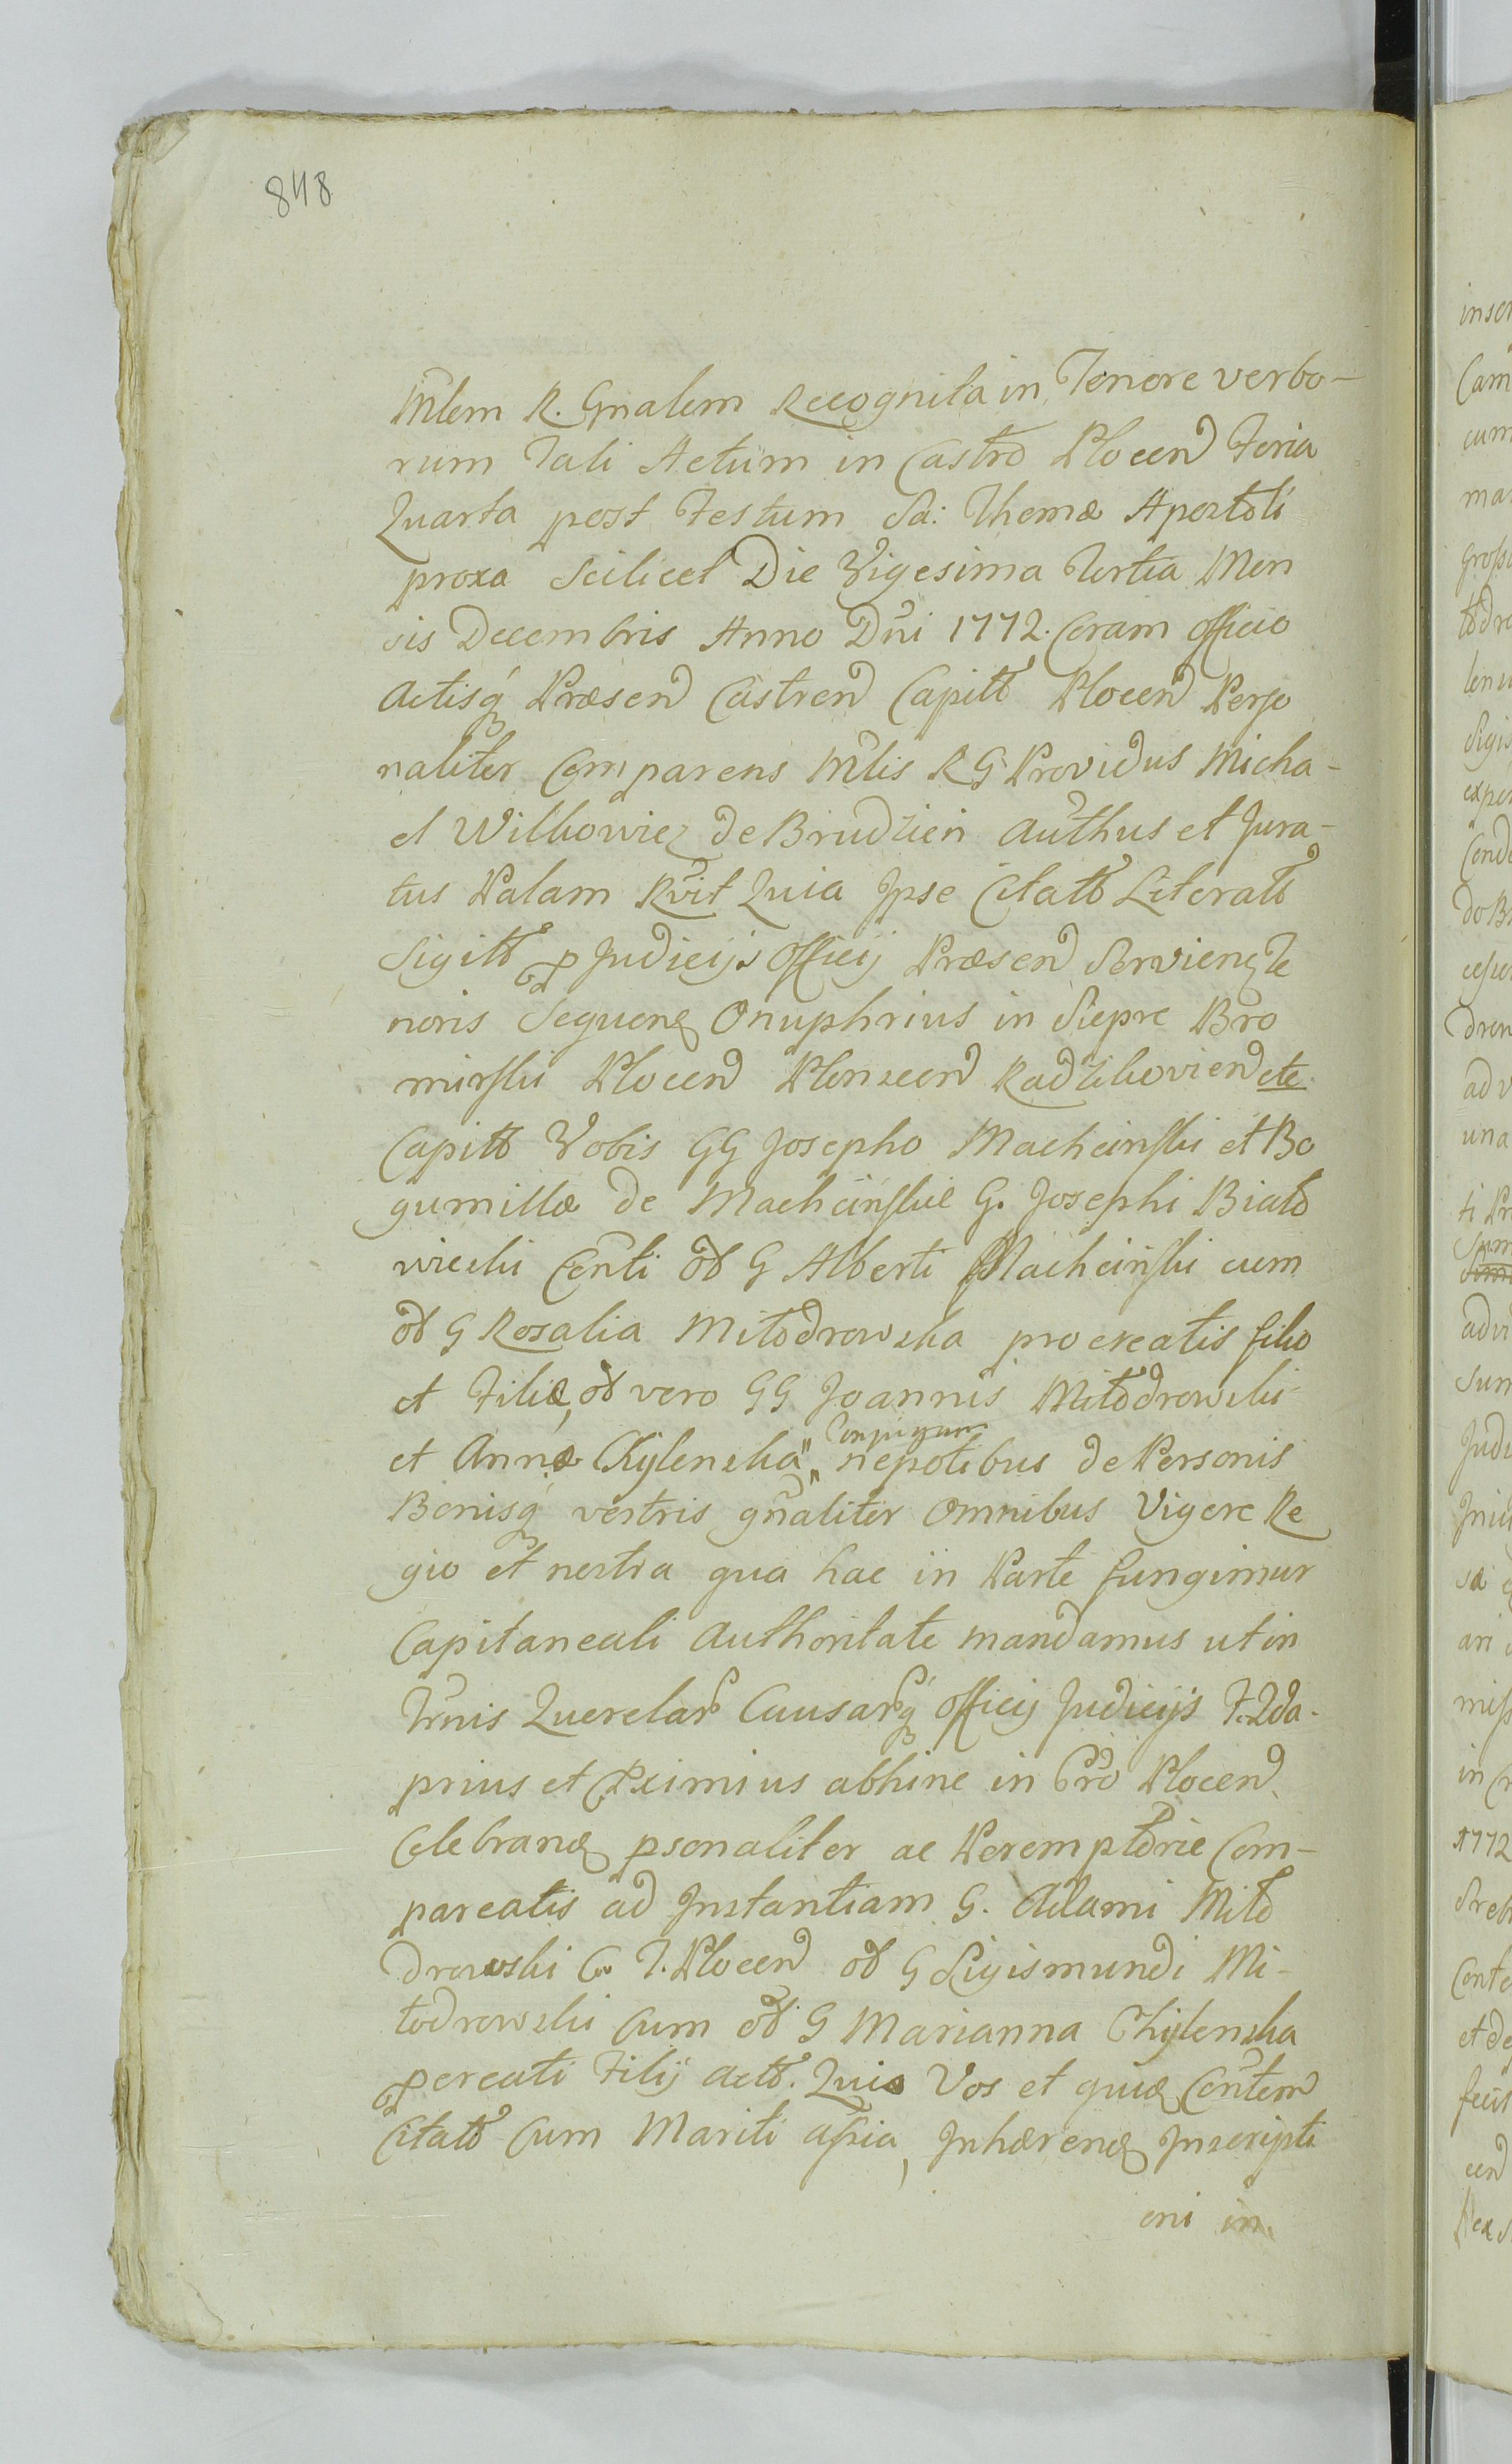 848
Mlem R. Gnalem Recognita in Tenore verbo-
rum Tali Actum in Castro Plocen Feria
Quarta post Festum Sa: Thomæ Apostoli
proxa Scilicet Die Vigesima Tertia Men
sis Decembris Anno Dni 1772. Coram officio
Actisq Præsen Castren Capitt Plocen Perso
naliter Comparens Mlis R G Providus Micha-
el Witkowicz de Brudzien Authus et Jura-
tus Palam Rvit Quia Ipse Citatt Literatt
Sigitt p Judicijs Officij Præsen Servieng Te
noris Sequeng Onuphrius in Siepre Bro
mirski Plocen Plonscen Radzikovien etc.
Capitt Vobis GG Josepho Machcinski et Bo
gumillæ de Machcinskie G. Josephi Biało
wieski Conti ol G Alberti Machcinski cum
ol G Rosalia Miłodrowska procreatis filio
et Filiæ, ol vero GG Joannis Miłodrowski
Conjugum
et Annæ Chylenska nepotibus de Personis
Bonisq vestris gnaliter Omnibus Vigore Re
gio et nostra qua hac in Parte fungimur
Capitaneali Authoritate mandamus ut in
Trnis Querelar Causarq Officij Judicijs F. Qda.
prius et Pximius abhinc in Cro Plocen
Celebrang psonaliter ac Peremptorie Com-
pareatis ad Instantiam G. Adami Miło
drowski C. T. Plocen ol G Sigismundi Mi-
łodrowski Cum ol G Marianna Chylenska
Pcreati Filij Actt. Quia Vos et quæ Contem
Citatt Cum Mariti assia, Inhæreng Inscripti
oni in